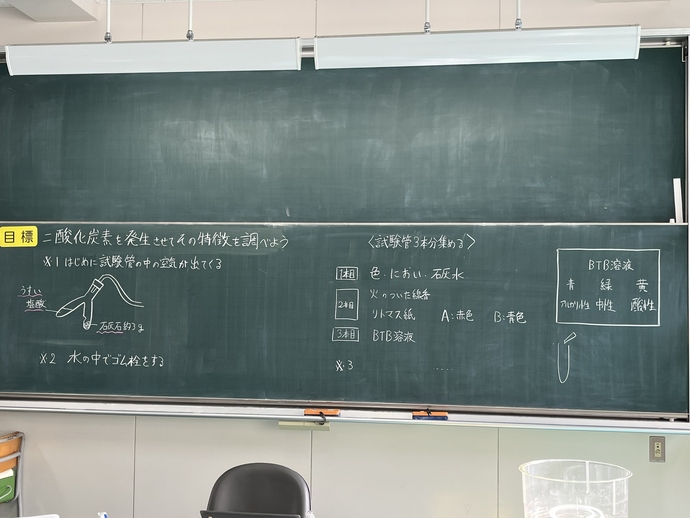 目標 二酸化炭素を発生させてその特徴を調べよう
※1 はじめに試験管の中の空気が出てくる
うすい
塩酸
石灰石約3g
※2 水の中でゴム栓をする
〈試験管3本分集める〉
1本目 色・におい・石灰水
2本目 火のついた線香
リトマス紙 A:赤色 B:青色
3本目 BTB溶液
※3 ……
BTB溶液
青 緑 黄
アルカリ性 中性 酸性